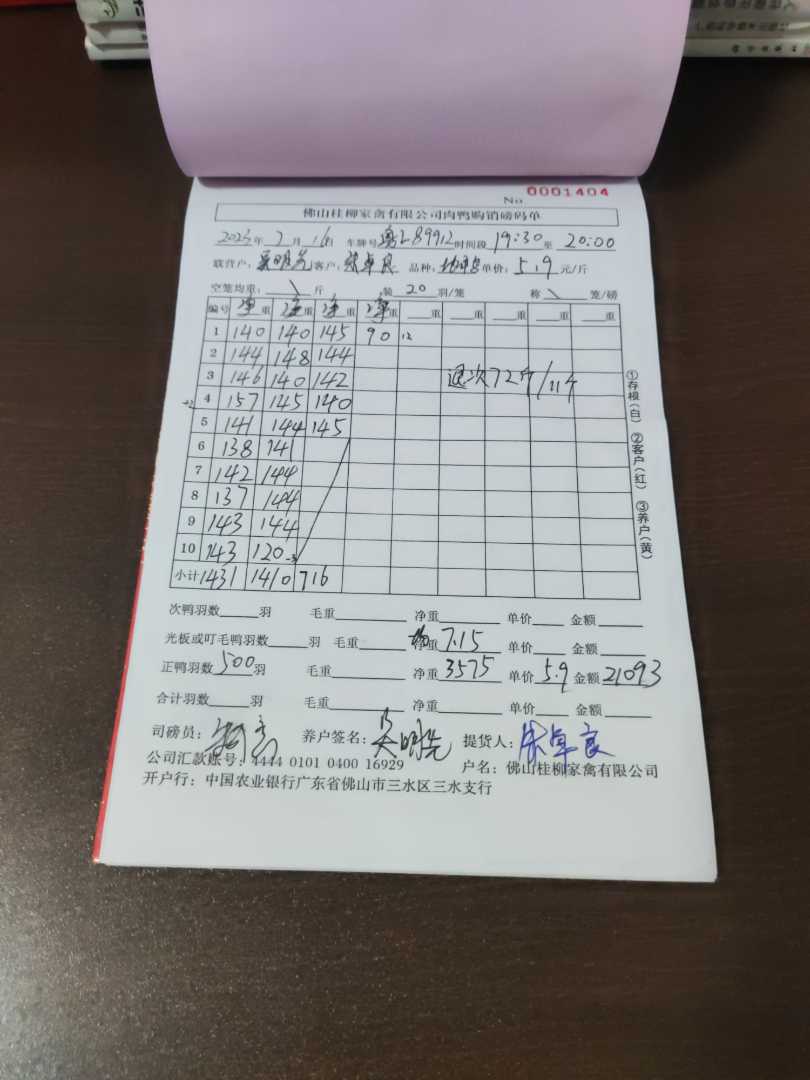 No 0001404
佛山桂柳家禽有限公司肉鸭购销磅码单
2023年 2月 16日 车牌号 粤L89912 时间段 19:30 至 20:00
联营户: 客户: 品种: 单价: 5.9 元/斤
空笼均重: \ 斤 装 20 羽/笼 称 \ 笼/磅
编号 净重 净重 净重 净重 重 重 重 重
1 140 140 145 90 12
2 144 148 144
3 146 140 142 退次72斤/21个
4 157 145 140
5 141 144 145
6 138 141
7 142 144
8 137 144
9 143 144
10 143 120
小计 1431 1410 716
①存根(白) ②客户(红) ③养户(黄)
次鸭羽数 羽 毛重 净重 单价 金额
光板或叮毛鸭羽数 羽 毛重 净重 7.15 单价 金额
正鸭羽数 500 羽 毛重 净重 3575 单价 5.9 金额 21093
合计羽数 羽 毛重 净重 单价 金额
司磅员: 养户签名: 提货人:
公司汇款账号: 4444 0101 0400 16929 户名: 佛山桂柳家禽有限公司
开户行: 中国农业银行广东省佛山市三水区三水支行